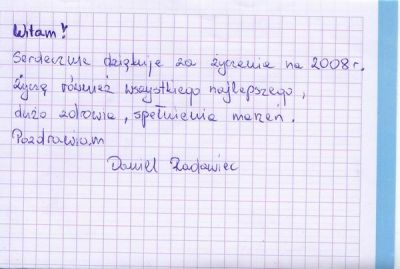 Witam!
Serdecznie dziękuje za życzenia na 2008 r.
Życzę również wszystkiego najlepszego,
dużo zdrowia, spełnienia marzeń.
Pozdrawiam
Daniel